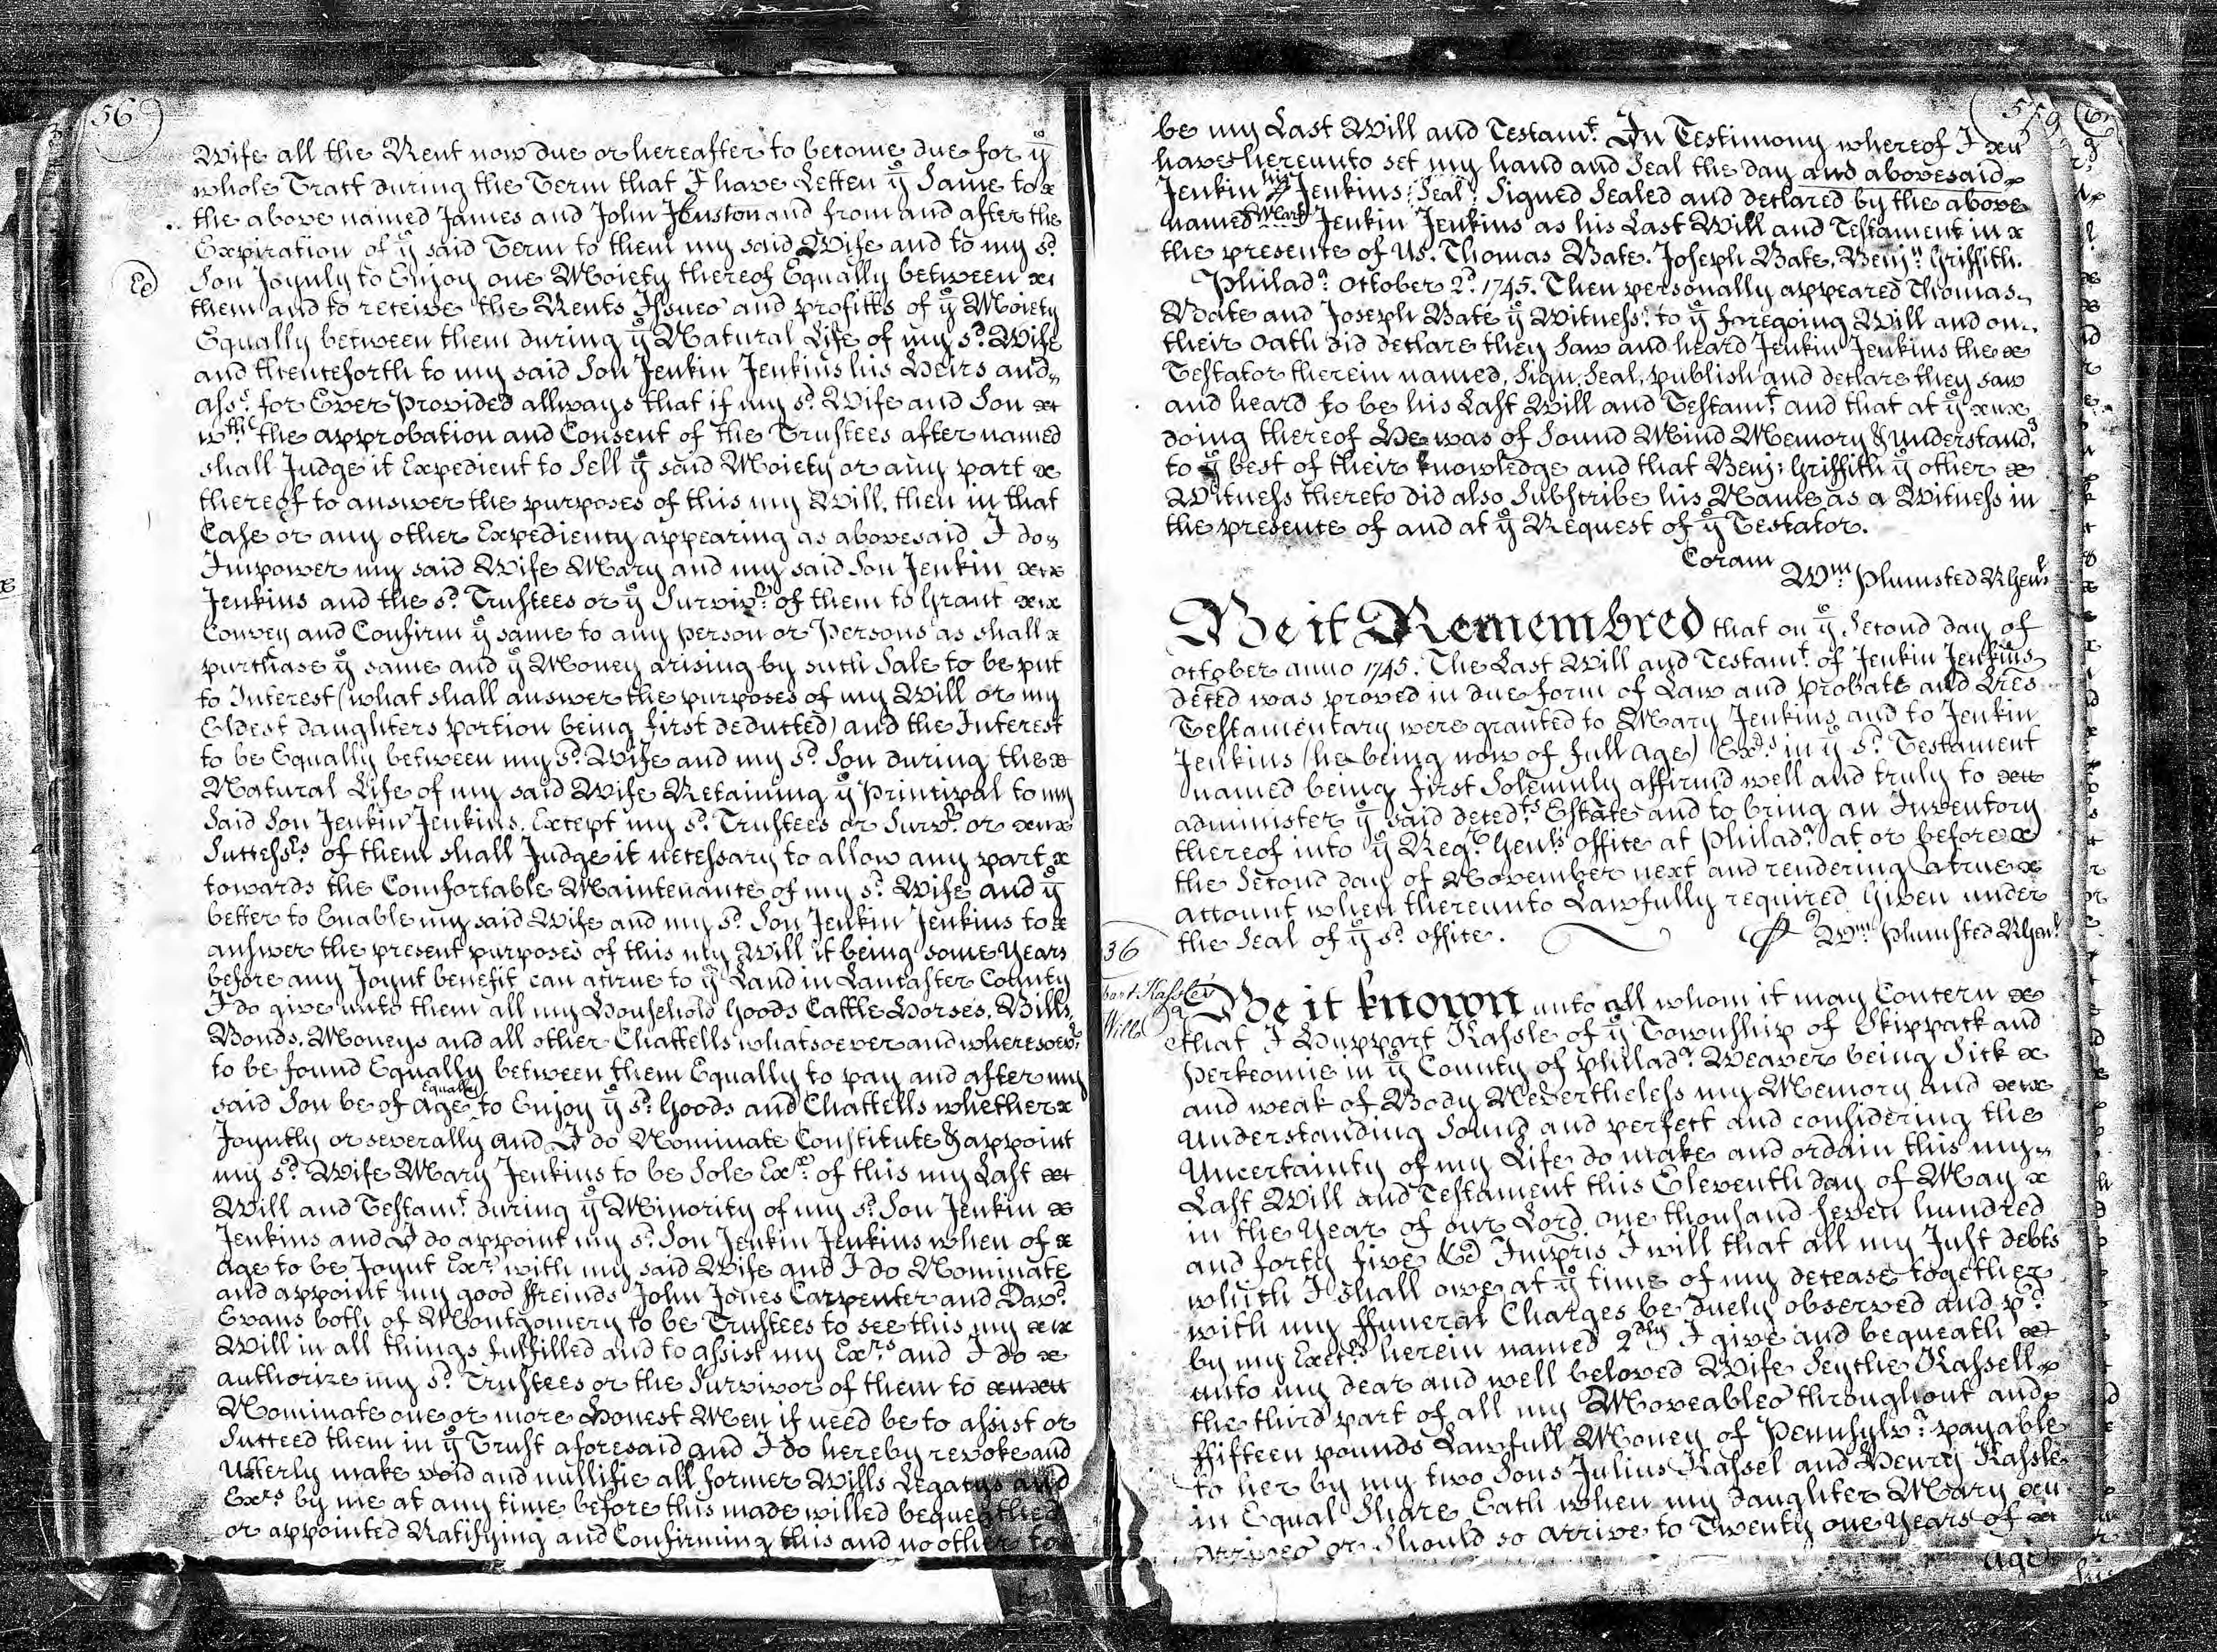 56
Wife all the Rent now due or hereafter to become due for ye
whole Tract during the Term that I have Letten ye Same to
the above named James and John Jenston and from and after the
Expiration of ye said Term to them my said Wife and to my sd
Son Joyntly to Enjoy one Moiety thereof Equally between
them and to receive the Rents Issues and profitts of ye Moiety
Equally between them during ye Natural Life of my sd Wife
and thenceforth to my said Son Jenkin Jenkins his Heirs and
asss for Ever Provided allways that if my sd Wife and Son
wth the approbation and Consent of the Trustees after named
shall Judge it Expedient to Sell ye said Moiety or any part
thereof to answer the purposes of this my Will, then in that
Case or any other Expediency appearing as abovesaid I do
Impower my said Wife Mary and my said Son Jenkin
Jenkins and the sd Trustees or ye Survivrs of them to Grant
Convey and Confirm ye same to any person or Persons as shall
purchase ye same and ye Money arising by such Sale to be put
to Interest (what shall answer the purposes of my Will or my
Eldest daughters portion being first deducted) and the Interest
to be Equally between my sd Wife and my sd Son during the
Natural Life of my said Wife Retaining ye Principal to my
Said Son Jenkin Jenkins. Except my sd Trustees or Survrs or
Successrs of them shall Judge it necessary to allow any part
towards the Comfortable Maintenance of my sd Wife and ye
better to Enable my said Wife and my sd Son Jenkin Jenkins to
answer the present purposes of this my Will it being some Years
before any Joynt benefit can accrue to ye Land in Lancaster County
I do give unto them all my Household Goods Cattle Horses, Bills,
Bonds, Moneys and all other Chattells whatsoever and wheresoevr
to be found Equally between them Equally to pay and after my
said Son be of age Equally to Enjoy ye sd Goods and Chattells whether
Joyntly or severally and I do Nominate Constitute & appoint
my sd Wife Mary Jenkins to be Sole Exx of this my Last
Will and Testamt during ye Minority of my sd Son Jenkin
Jenkins and I do appoint my sd Son Jenkin Jenkins when of
age to be Joynt Exr with my said Wife and I do Nominate
and appoint my good ffreinds John Jones Carpenter and Davd
Evans both of Montgomery to be Trustees to see this my
Will in all things fulfilled and to assist my Exrs and I do
authorize my sd Trustees or the Survivor of them to
Nominate one or more Honest Men if need be to assist or
Succeed them in ye Trust aforesaid and I do hereby revoke and
Utterly make void and nullifie all former Wills Legacys and
Exrs by me at any time before this made willed bequeathed
or appointed Ratifying and Confirming this and no other to
57
be my Last Will and Testamt In Testimony whereof I
have hereunto set my hand and Seal the day and abovesaid
Jenkin his Mark Jenkins Seal Signed Sealed and declared by the above
named Jenkin Jenkins as his Last Will and Testament in
the presence of Us. Thomas Bate. Joseph Bate. Benjn Griffith.
Philada October 2d 1745. Then personally appeared Thomas
Bate and Joseph Bate ye Witnesss to ye foregoing Will and on
their Oath did declare they Saw and heard Jenkin Jenkins the
Testator therein named, Sign, Seal, publish and declare they saw
and heard to be his Last Will and Testamt and that at ye
doing thereof He was of Sound Mind Memory & understandg
to ye best of their knowledge and that Benj: Griffith ye other
Witness thereto did also Subscribe his Name as a Witness in
the presence of and at ye Request of ye Testator.
Coram
Wm Plumsted RGenl
Be it Remembred that on ye Second day of
october anno 1745. The Last Will and Testamt of Jenkin Jenkins
deced was proved in due form of Law and probate and Lres
Testamentary were granted to Mary Jenkins and to Jenkin
Jenkins (he being now of full age) Exrs in ye sd Testament
named being first Solemnly affirmd well and truly to
administer ye said decedts Estate and to bring an Inventory
thereof into ye Regr Genls office at Philada at or before
the Second day of November next and rendering a true
account when thereunto Lawfully required Given under
the Seal of ye sd office.
Wm Plumsted RGenl
36
Kassle
Will
Be it known unto all whom it may Concern
that I Huppart Kassle of ye Township of Skippack and
Perkeomie in ye County of Philada Weaver being Sick
and weak of Body Nevertheless my Memory and
Understanding Sound and perfect and considering the
Uncertainty of my Life do make and ordain this my
Last Will and Testament this Eleventh day of May
in the Year of our Lord one thousand Seven hundred
and forty five &c Impris I will that all my Just debts
which I shall owe at ye time of my decease together
with my ffuneral Charges be duely observed and pd
by my Execrs herein named 2dly I give and bequeath
unto my dear and well beloved Wife Seythe Kassell
the third part of all my Moveables throughout and
ffifteen pounds Lawfull Money of Pennsylva payable
to her by my two Sons Julius Kassel and Henry Kassle
in Equal Share Each when my daughter Mary
arrived or Should so arrive to Twenty one Years of
age